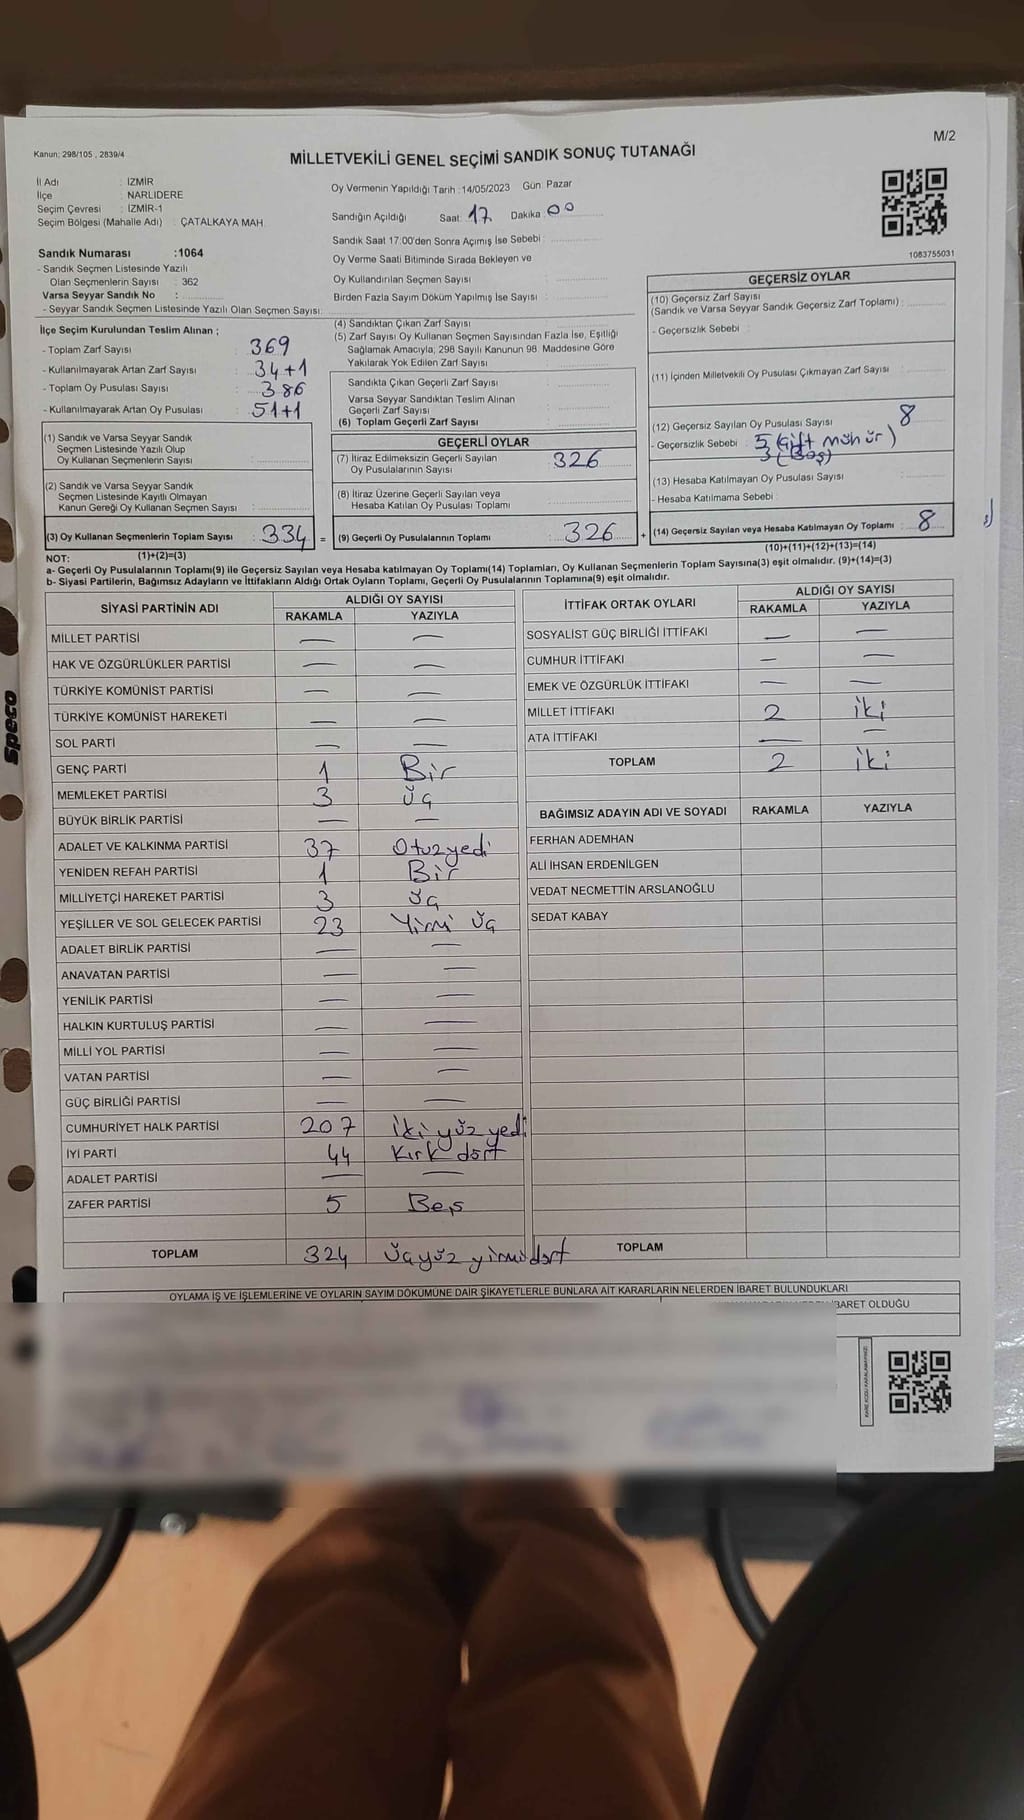 M/2
Kanun: 298/105 , 2839/4
MİLLETVEKİLİ GENEL SEÇİMİ SANDIK SONUÇ TUTANAĞI
İl Adı : İZMİR
İlçe : NARLIDERE
Seçim Çevresi : İZMİR-1
Seçim Bölgesi (Mahalle Adı) : ÇATALKAYA MAH.
Sandık Numarası :1064
- Sandık Seçmen Listesinde Yazılı
Olan Seçmenlerin Sayısı : 362
Varsa Seyyar Sandık No :
- Seyyar Sandık Seçmen Listesinde Yazılı Olan Seçmen Sayısı:
Oy Vermenin Yapıldığı Tarih :14/05/2023 Gün: Pazar
Sandığın Açıldığı Saat: 17 Dakika :00
Sandık Saat 17:00'den Sonra Açımış İse Sebebi :
Oy Verme Saati Bitiminde Sırada Bekleyen ve
Oy Kullandırılan Seçmen Sayısı :
Birden Fazla Sayım Döküm Yapılmış İse Sayısı :
1083755031
İlçe Seçim Kurulundan Teslim Alınan ;
- Toplam Zarf Sayısı : 369
- Kullanılmayarak Artan Zarf Sayısı : 34+1
- Toplam Oy Pusulası Sayısı : 386
- Kullanılmayarak Artan Oy Pusulası : 51+1
(1) Sandık ve Varsa Seyyar Sandık
Seçmen Listesinde Yazılı Olup
Oy Kullanan Seçmenlerin Sayısı :
(2) Sandık ve Varsa Seyyar Sandık
Seçmen Listesinde Kayıtlı Olmayan
Kanun Gereği Oy Kullanan Seçmen Sayısı :
(3) Oy Kullanan Seçmenlerin Toplam Sayısı : 334 =
(1)+(2)=(3)
(4) Sandıktan Çıkan Zarf Sayısı :
(5) Zarf Sayısı Oy Kullanan Seçmen Sayısından Fazla İse, Eşitliği
Sağlamak Amacıyla; 298 Sayılı Kanunun 98. Maddesine Göre
Yakılarak Yok Edilen Zarf Sayısı :
Sandıkta Çıkan Geçerli Zarf Sayısı :
Varsa Seyyar Sandıktan Teslim Alınan
Geçerli Zarf Sayısı :
(6) Toplam Geçerli Zarf Sayısı :
GEÇERLİ OYLAR
(7) İtiraz Edilmeksizin Geçerli Sayılan
Oy Pusulalarının Sayısı : 326
(8) İtiraz Üzerine Geçerli Sayılan veya
Hesaba Katılan Oy Pusulası Toplamı :
(9) Geçerli Oy Pusulalarının Toplamı : 326 +
GEÇERSİZ OYLAR
(10) Geçersiz Zarf Sayısı
(Sandık ve Varsa Seyyar Sandık Geçersiz Zarf Toplamı) :
- Geçersizlik Sebebi :
(11) İçinden Milletvekili Oy Pusulası Çıkmayan Zarf Sayısı :
(12) Geçersiz Sayılan Oy Pusulası Sayısı : 8
- Geçersizlik Sebebi : 5 (Çift mühür)
3 (Boş)
(13) Hesaba Katılmayan Oy Pusulası Sayısı :
- Hesaba Katılmama Sebebi :
(14) Geçersiz Sayılan veya Hesaba Katılmayan Oy Toplamı : 8
(10)+(11)+(12)+(13)=(14)
NOT:
a- Geçerli Oy Pusulalarının Toplamı(9) ile Geçersiz Sayılan veya Hesaba katılmayan Oy Toplamı(14) Toplamları, Oy Kullanan Seçmenlerin Toplam Sayısına(3) eşit olmalıdır. (9)+(14)=(3)
b- Siyasi Partilerin, Bağımsız Adayların ve İttifakların Aldığı Ortak Oyların Toplamı, Geçerli Oy Pusulalarının Toplamına(9) eşit olmalıdır.
SİYASİ PARTİNİN ADI ALDIĞI OY SAYISI
RAKAMLA YAZIYLA
MİLLET PARTİSİ — —
HAK VE ÖZGÜRLÜKLER PARTİSİ — —
TÜRKİYE KOMÜNİST PARTİSİ — —
TÜRKİYE KOMÜNİST HAREKETİ — —
SOL PARTİ — —
GENÇ PARTİ 1 Bir
MEMLEKET PARTİSİ 3 Üç
BÜYÜK BİRLİK PARTİSİ — —
ADALET VE KALKINMA PARTİSİ 37 Otuzyedi
YENİDEN REFAH PARTİSİ 1 Bir
MİLLİYETÇİ HAREKET PARTİSİ 3 Üç
YEŞİLLER VE SOL GELECEK PARTİSİ 23 Yirmi Üç
ADALET BİRLİK PARTİSİ — —
ANAVATAN PARTİSİ — —
YENİLİK PARTİSİ — —
HALKIN KURTULUŞ PARTİSİ — —
MİLLİ YOL PARTİSİ — —
VATAN PARTİSİ — —
GÜÇ BİRLİĞİ PARTİSİ — —
CUMHURİYET HALK PARTİSİ 207 İki yüz yedi
İYİ PARTİ 44 Kırk dört
ADALET PARTİSİ — —
ZAFER PARTİSİ 5 Beş
TOPLAM 324 Üçyüz yirmidört
İTTİFAK ORTAK OYLARI ALDIĞI OY SAYISI
RAKAMLA YAZIYLA
SOSYALİST GÜÇ BİRLİĞİ İTTİFAKI — —
CUMHUR İTTİFAKI — —
EMEK VE ÖZGÜRLÜK İTTİFAKI — —
MİLLET İTTİFAKI 2 İki
ATA İTTİFAKI — —
TOPLAM 2 İki
BAĞIMSIZ ADAYIN ADI VE SOYADI RAKAMLA YAZIYLA
FERHAN ADEMHAN
ALİ İHSAN ERDENİLGEN
VEDAT NECMETTİN ARSLANOĞLU
SEDAT KABAY
TOPLAM
OYLAMA İŞ VE İŞLEMLERİNE VE OYLARIN SAYIM DÖKÜMÜNE DAİR ŞİKAYETLERLE BUNLARA AİT KARARLARIN NELERDEN İBARET BULUNDUKLARI
İBARET OLDUĞU
speco